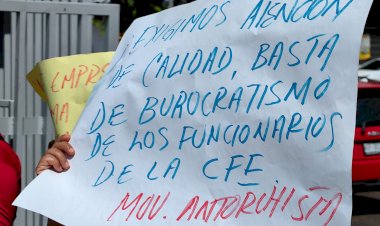 EXIGIMOS ATENCION
DE CALIDAD, BASTA
DE BUROCRATISMO
DE LOS FUNCIONARIOS
DE LA CFE.
MOV. ANTORCHISTA